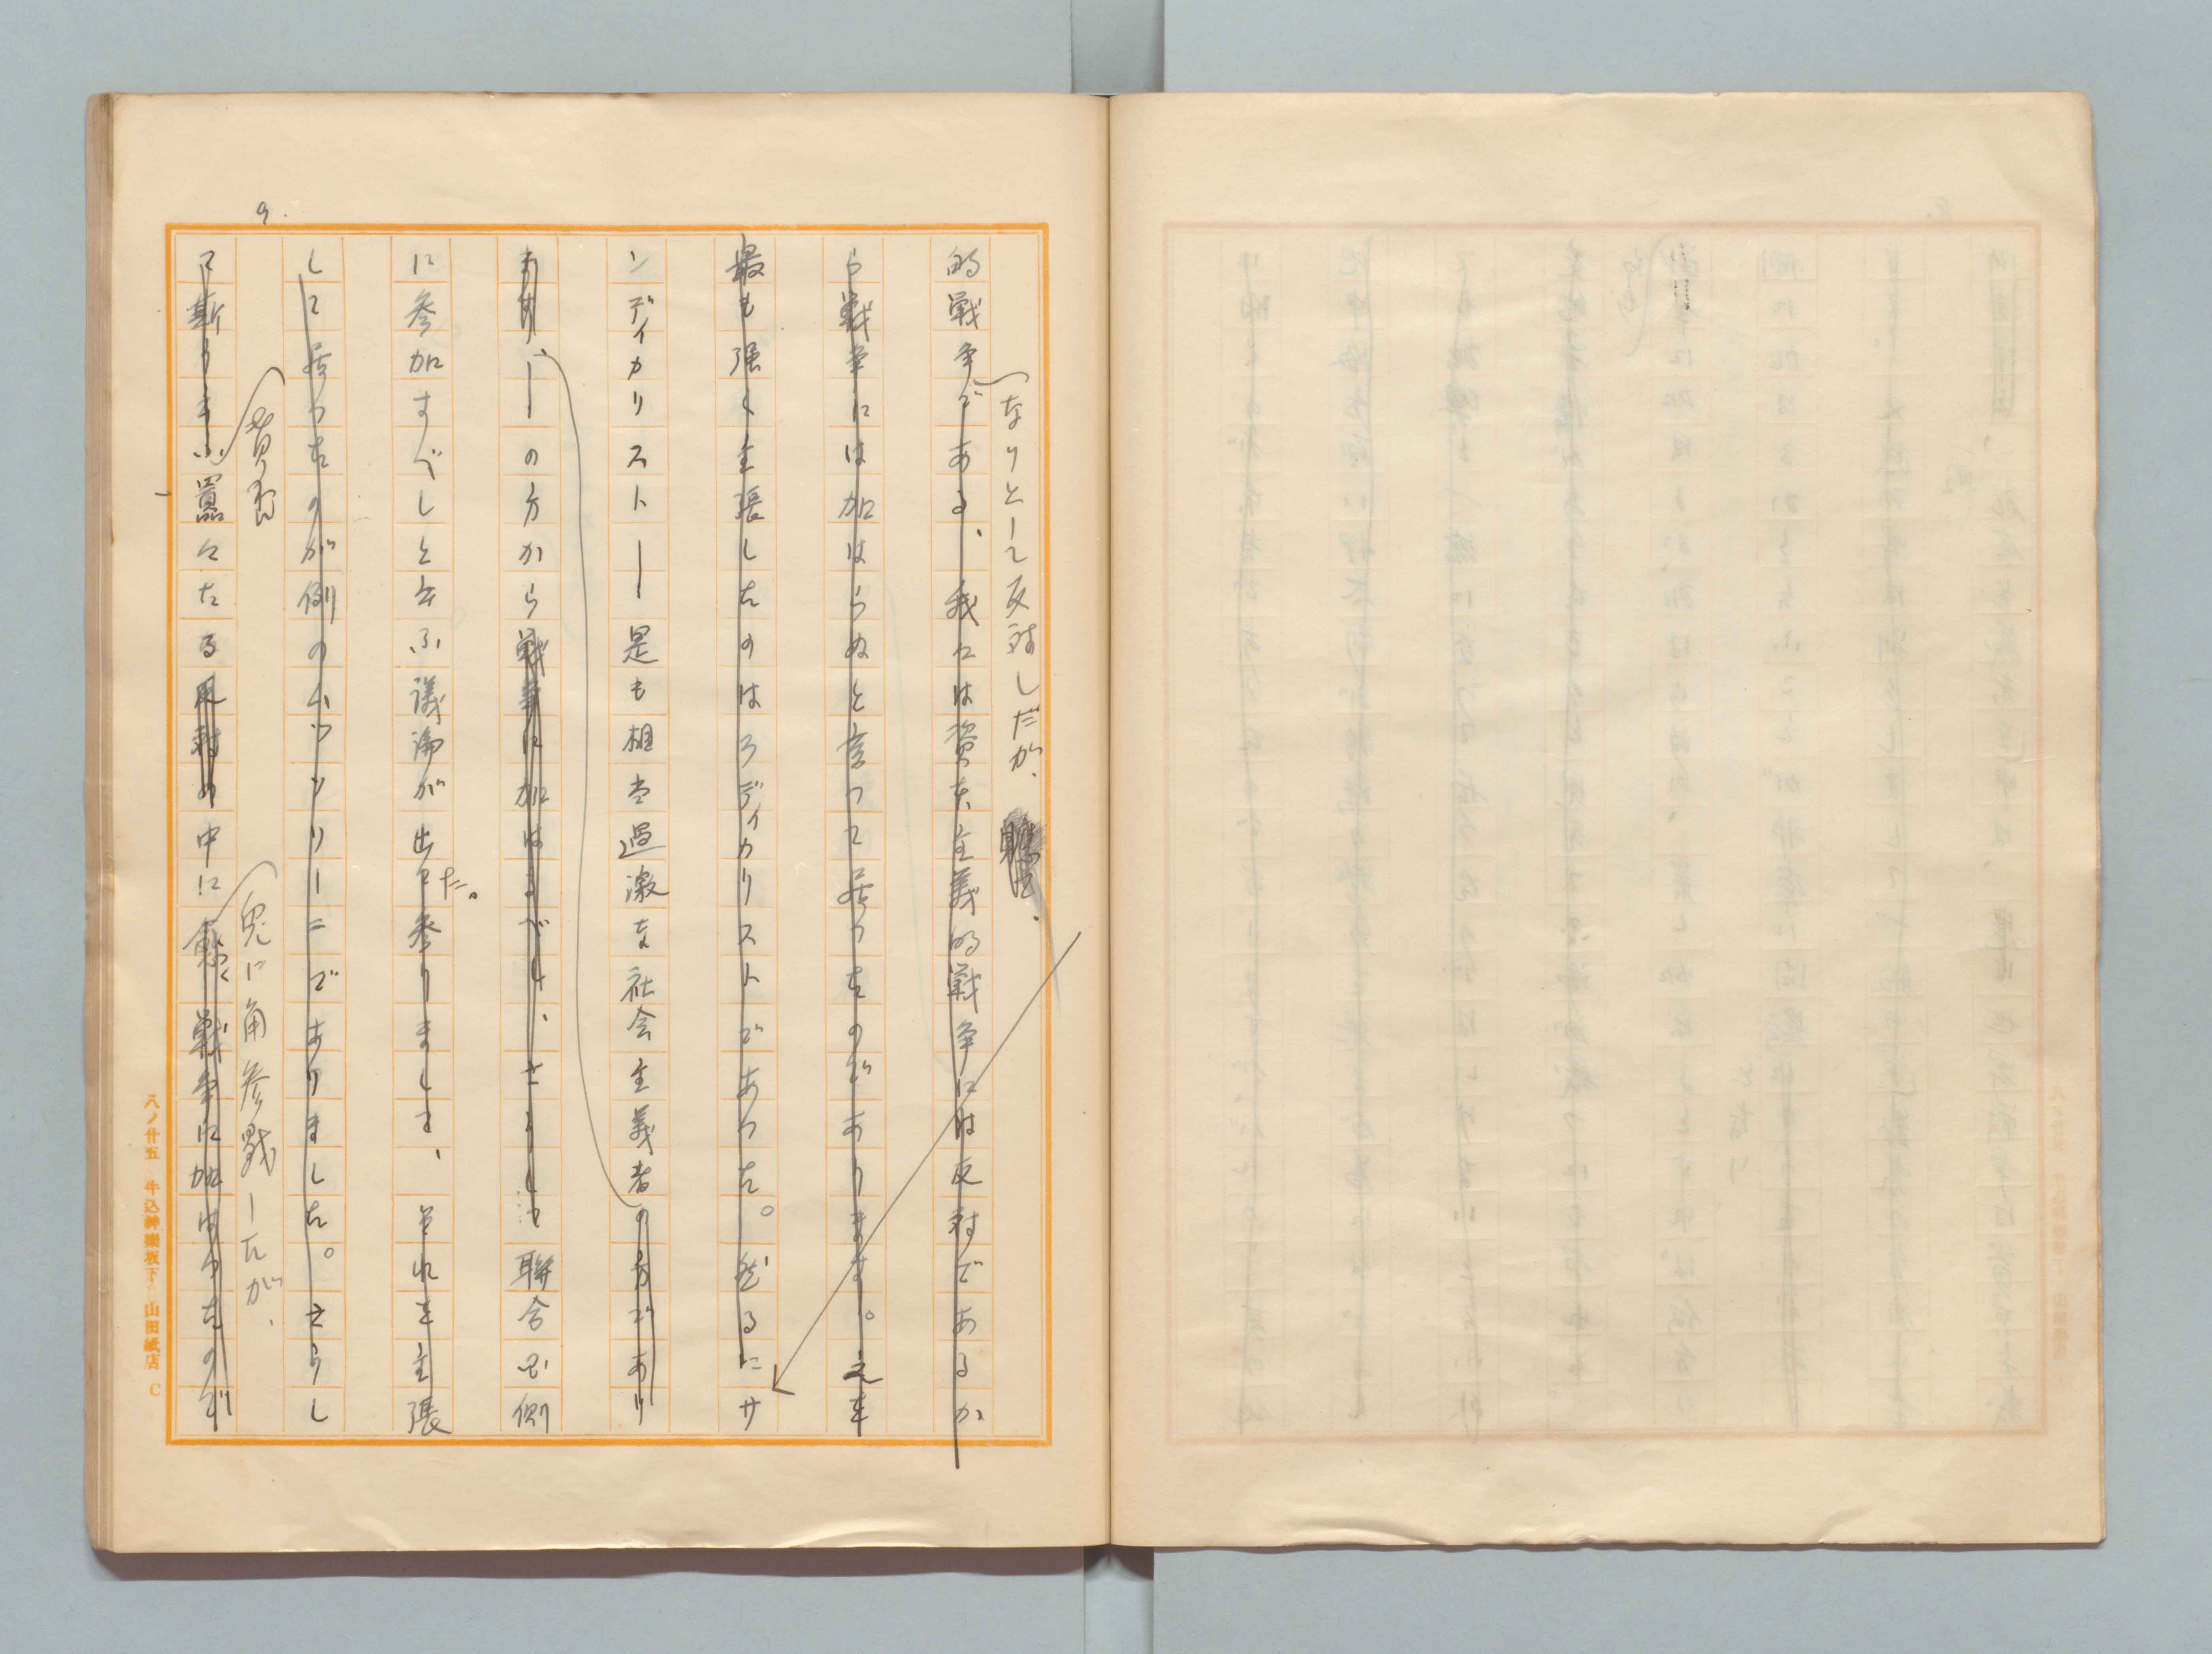 9.
なりとして反対しだが、
的戦争である、我々は資本主義的戦争には反対であるか
ら戦争には加はらぬと言つて居つたのであります。之を
最も強く主張したのはろディカリストであつた。然るにサ
ンディカリスト―是も相当過激な社会主義者の方であり
ます、―の方から戦争に加はるべし、さうして聯合国側
に参加すべしと云ふ議論が出て参りまして、それを主張
た。
して居つたのが例のムツソリーニでありました。さうし
賛否
兎に角参戦したが、
て斯う云ふ囂々たる反対の中に愈々戦争に加はつたのだ
八ノ廿五 牛込神樂坂下 山田紙店 C